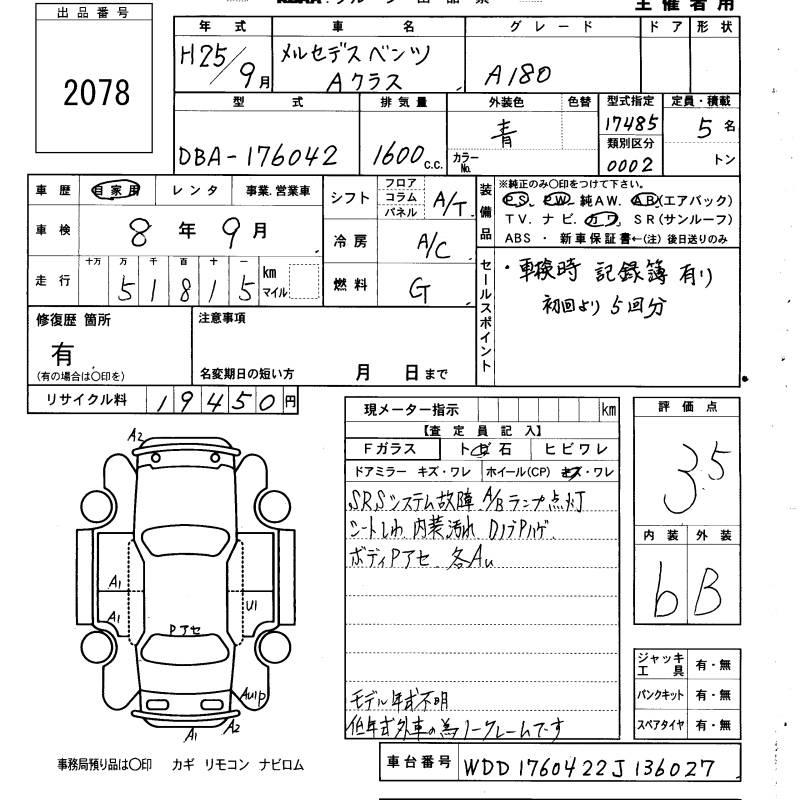 出品番号
2078
主催者用
年式 車名 グレード ドア 形状
H25/9月 メルセデスベンツ Aクラス A180
型式 排気量 外装色 色替 型式指定 定員・積載
DBA-176042 1600c.c. 青 カラーNo. 17485 5名
類別区分
0002 トン
車歴 自家用 レンタ 事業.営業車
車検 8年 9月
走行 十万 万 千 百 十 一 km マイル
51815
シフト フロア コラム パネル A/T
冷房 A/C
燃料 G
装備品
※純正のみ〇印をつけて下さい。
PS. PW. 純AW. AB(エアバック)
TV. ナビ. カワ. SR(サンルーフ)
ABS・新車保証書←(注)後日送りのみ
セールスポイント
・車検時 記録簿 有り
初回より 5回分
修復歴 箇所
有
(有の場合は〇印を)
注意事項
名変期日の短い方 月 日まで
リサイクル料 19450円
現メーター指示 km
【査定員記入】
Fガラス トビ石 ヒビワレ
ドアミラー キズ・ワレ ホイール(CP) キズ・ワレ
SRSシステム故障 A/Bランプ点灯
シートしわ 内装汚れ DノブPハゲ
ボディPアセ 各Au
モデル年式不明
低年式外車の為ノークレームです
評価点
3.5
内装 外装
b B
ジャッキ工具 有・無
パンクキット 有・無
スペアタイヤ 有・無
A2
A1
A1
U1
Pアセ
AuIP
A1
A2
事務局預り品は〇印 カギ リモコン ナビロム
車台番号 WDD1760422J136027